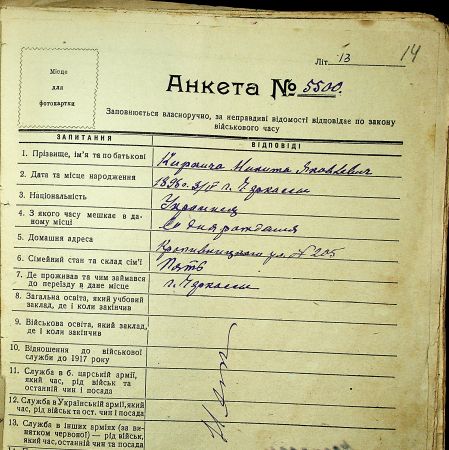 14
Літ. 13
Місце
для
фотокартки
Анкета № 5500.
Заповнюється власноручно, за неправдиві відомості відповідає по закону
військового часу
ЗАПИТАННЯ ВІДПОВІДІ
1. Прізвище, ім'я та по батькові Никита Яковлевич
2. Дата та місце народження г. Черкассы
3. Національність Украинец
4. З якого часу мешкає в да-
ному місці Со дня рождения
5. Домашня адреса ул. № 205
6. Сімейний стан та склад сім'ї Пять
7. Де проживав та чим займався
до переїзду в дане місце г. Черкассы
8. Загальна освіта, який учбовий
заклад, де і коли закінчив
9. Військова освіта, який заклад,
де і коли закінчив
10. Відношення до військової
служби до 1917 року
11. Служба в б. царській армії,
який час, рід військ та
останній чин і посада
12. Служба в Українській армії, який
час, рід військ та ост. чин і посада
13. Служба в інших арміях (за ви-
нятком червоної) — рід військ,
який час, останній чин та посада